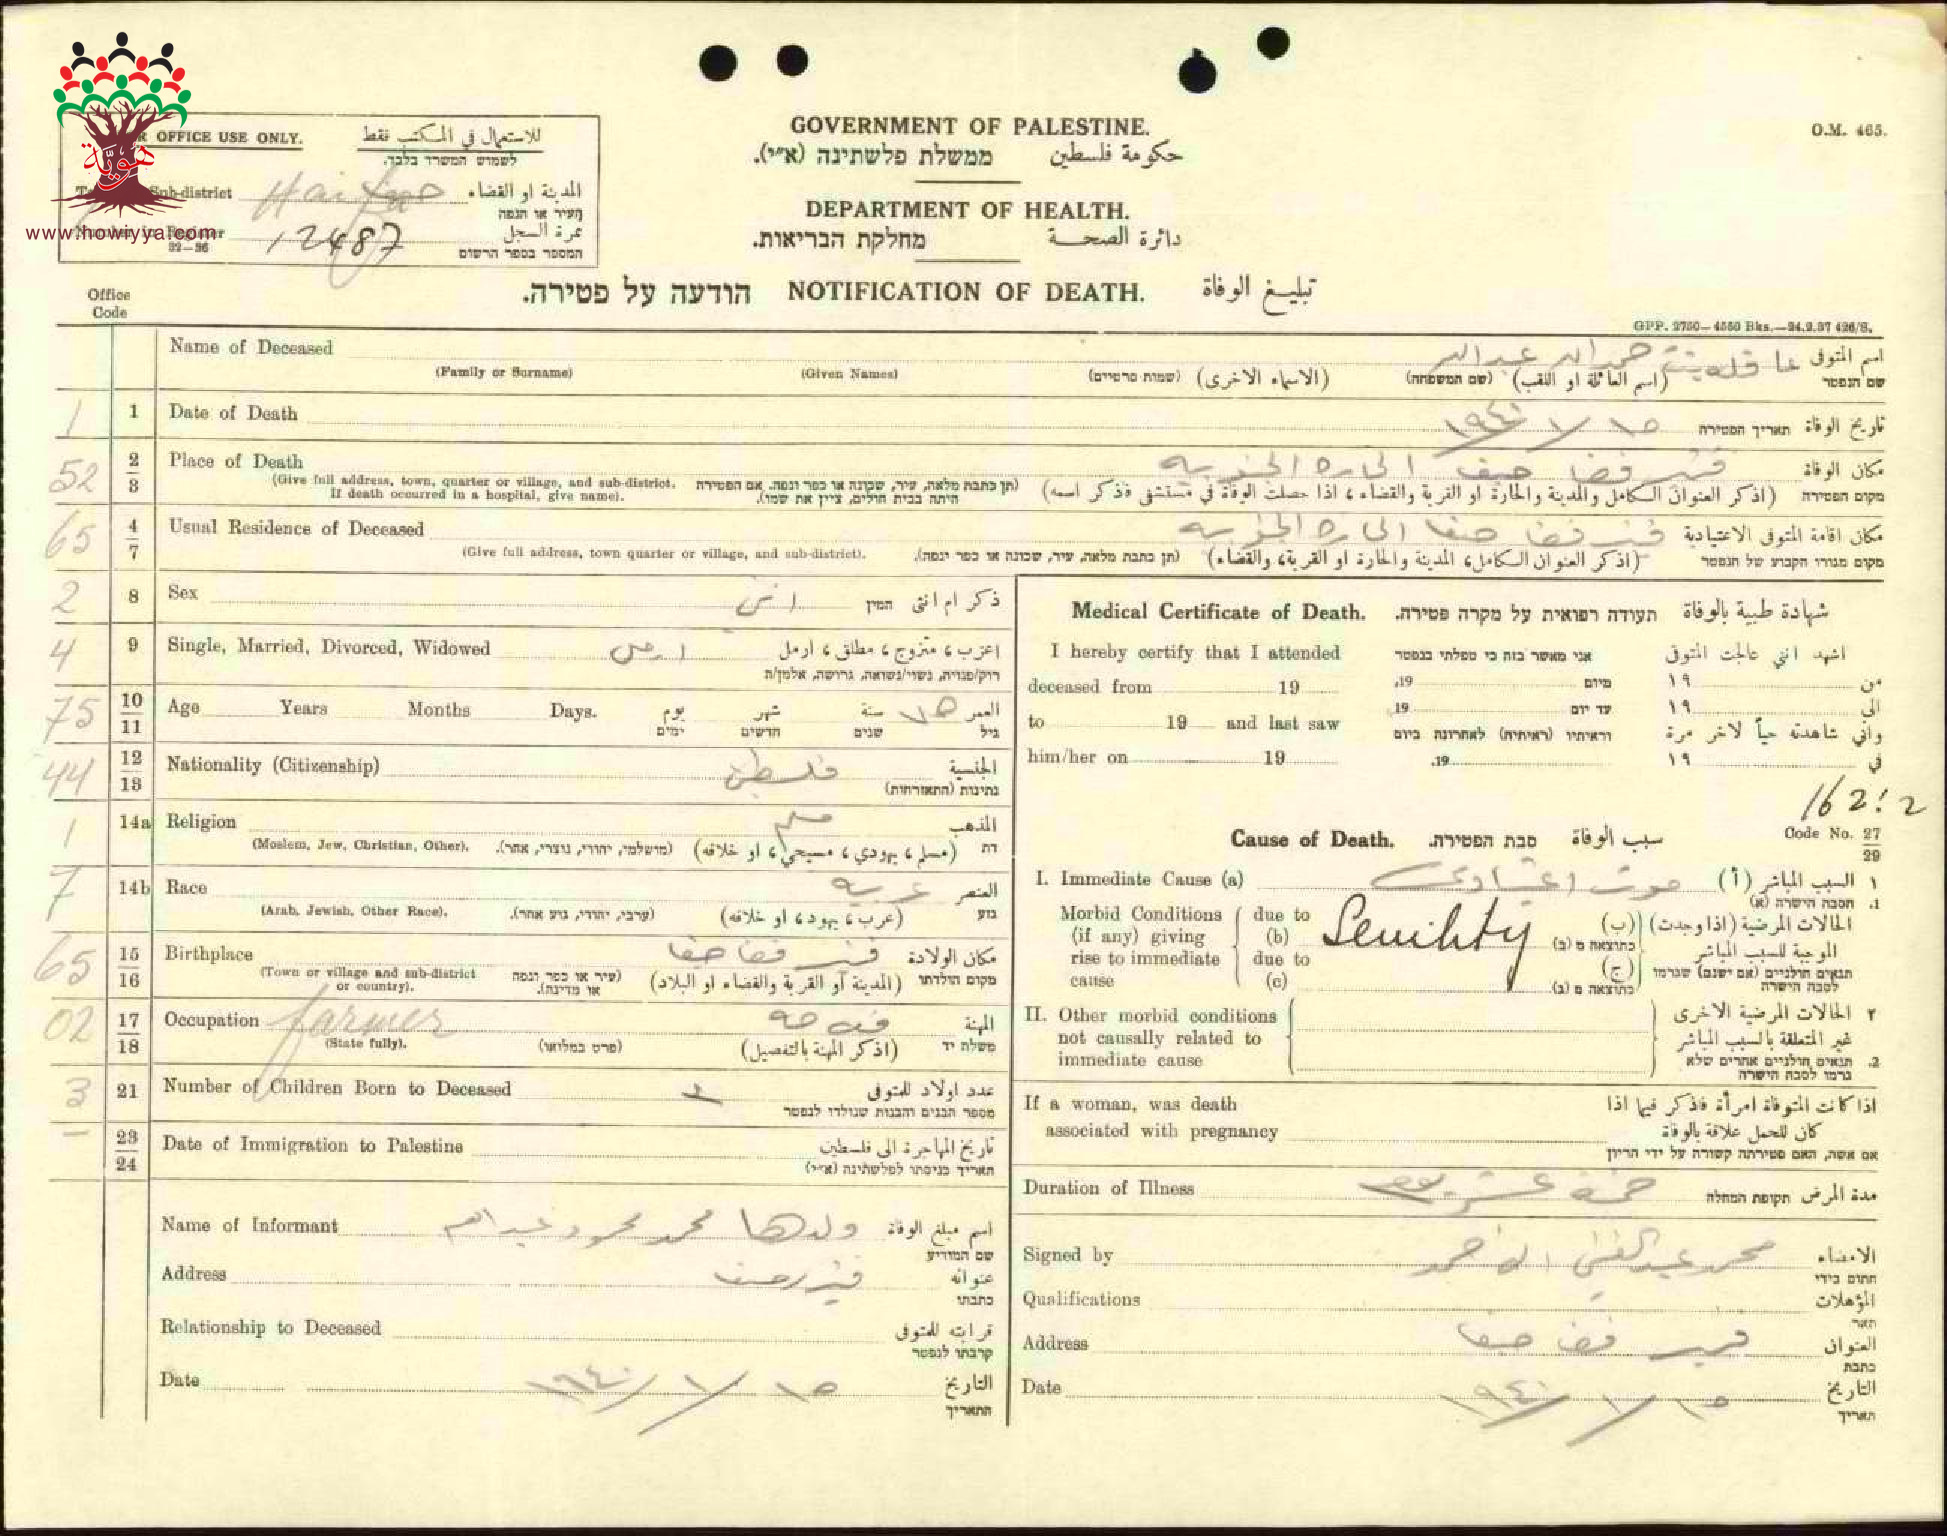 GOVERNMENT OF PALESTINE.
ממשלת פלשתינה (א״י). حكومة فلسطين
O.M. 465.
DEPARTMENT OF HEALTH.
מחלקת הבריאות. دائرة الصحة
OFFICE USE ONLY. للاستعمال في المكتب فقط
לשמוש המשרד בלבד.
Sub-district Haifa حيفا المدينة او القضاء
העיר או הנפה
Number in Register 12487 نمرة السجل
22-26 המספר בספר הרשום
هُويَّة
www.howiyya.com
הודעה על פטירה. NOTIFICATION OF DEATH. تبليغ الوفاة
Office
Code
GPP. 2750-4550 Bks.-24.2.37 426/S.
Name of Deceased عبدالله اسم المتوفى
(Family or Surname) (Given Names) (שמות פרטיים) (الاسماء الاخرى) (שם המשפחה) (اسم العائلة او اللقب) שם הנפטר
1 1 Date of Death ١٥ / ١ / ١٩٤٠ תאריך הפטירה تاريخ الوفاة
52 2/3 Place of Death حيفا الحارة مكان الوفاة
(Give full address, town, quarter or village, and sub-district. If death occurred in a hospital, give name). (תן כתבת מלאה, עיר, שכונה או כפר ונפה. אם הפטירה היתה בבית חולים, ציין את שמו). (اذكر العنوان الكامل والمدينة والحارة او القرية والقضاء، اذا حصلت الوفاة في مستشفى فذكر اسمه) מקום הפטירה
65 4/7 Usual Residence of Deceased حيفا الحارة مكان اقامة المتوفى الاعتيادية
(Give full address, town quarter or village, and sub-district). (תן כתבת מלאה, עיר, שכונה או כפר ונפה). (اذكر العنوان الكامل، المدينة والحارة او القرية، والقضاء) מקום מגורי הקבוע של הנפטר
2 8 Sex انثى המין ذكر ام انثى
4 9 Single, Married, Divorced, Widowed اعزب، متزوج، مطلق، ارمل
רוק/פנויה, נשוי/נשואה, גרושה, אלמן/ה
75 10/11 Age Years Months Days. يوم شهر سنة ٧٥ العمر
ימים חדשים שנים גיל
44 12/13 Nationality (Citizenship) الجنسية
נתינות (התאזרחות)
1 14a Religion مسلم المذهب
(Moslem, Jew, Christian, Other). (מושלמי, יהודי, נוצרי, אחר). (مسلم، يهودي، مسيحي، او خلافه) דת
7 14b Race عربيه العنصر
(Arab, Jewish, Other Race). (ערבי, יהודי, גזע אחר). (عرب، يهود، او خلافه) גזע
65 15/16 Birthplace حيفا مكان الولادة
(Town or village and sub-district or country). (עיר או כפר ונפה או מדינה). (المدينة او القرية والقضاء او البلاد) מקום הולדתו
02 17/18 Occupation farmer فلاحه المهنة
(State fully). (פרט במלואו) (اذكر المهنة بالتفصيل) משלח יד
3 21 Number of Children Born to Deceased ٣ عدد اولاد للمتوفى
מספר הבנים והבנות שנולדו לנפטר
— 23/24 Date of Immigration to Palestine تاريخ المهاجرة الى فلسطين
תאריך כניסתו לפלשתינה (א״י)
Name of Informant ولدها محمد محمود اسم مبلغ الوفاة
שם המודיע
Address عنوانه
כתבתו
Relationship to Deceased قرابته للمتوفى
קרבתו לנפטר
Date ١٥ / ١ / ١٩٤٠ التاريخ
התאריך
Medical Certificate of Death. תעודה רפואית על מקרה פטירה. شهادة طبية بالوفاة
I hereby certify that I attended אני מאשר בזה כי טפלתי בנפטר اشهد انني عالجت المتوفى
deceased from 19 .19 מיום ١٩ من
to 19 and last saw 19 עד יום ١٩ الى
וראיתיו (ראיתיה) לאחרונה ביום واني شاهدته حياً لاخر مرة
him/her on 19 .19 ١٩ في
162.2
Cause of Death. סבת הפטירה. سبب الوفاة Code No. 27/29
I. Immediate Cause (a) موت (أ) السبب المباشر ١
הסבה הישרה (א) .1
Morbid Conditions due to (ب) الحالات المرضية (اذا وجدت)
(if any) giving (b) Senility כתוצאה מ (ב) الموجبة للسبب المباشر
rise to immediate due to (ج) תנאים חולניים (אם ישנם) שגרמו
cause (c) כתוצאה מ (ג) לסבה הישרה
II. Other morbid conditions ٢ الحالات المرضية الاخرى
not causally related to غير المتعلقة بالسبب المباشر
immediate cause .2 תנאים חולניים אחרים שלא
גרמו לסבה הישרה
If a woman, was death اذا كانت المتوفاة امرأة فذكر فيما اذا
associated with pregnancy كان للحمل علاقة بالوفاة
אם אשה, האם פטירתה קשורה על ידי הריון
Duration of Illness خمسة عشر يوم תקופת המחלה مدة المرض
Signed by محمد الامضاء
חתום בידי
Qualifications المؤهلات
תאר
Address حيفا العنوان
כתבת
Date ١٥ / ١ / ١٩٤٠ التاريخ
תאריך